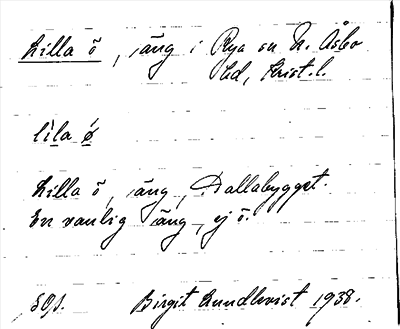 Lilla ö, äng i Rya sn N. Åsbo
hd, Krist. l.
lila ö
Lilla ö, äng, Dallabygget.
En vanlig äng, ej ö.
Birgit Lundkvist 1938.